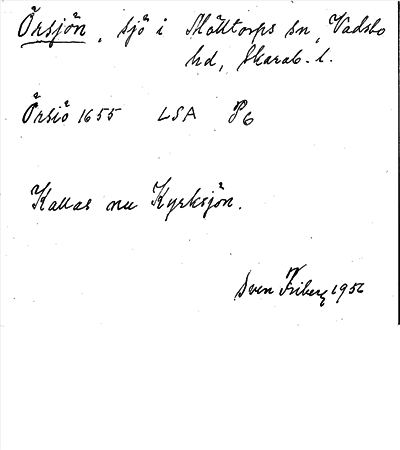 Örsjön, sjö i Mölltorps sn, Vadsbo
hd, Skarab. l.
Örsiö 1655 LSA P6
Kallas nu Kyrksjön.
Sven Friberg 1956